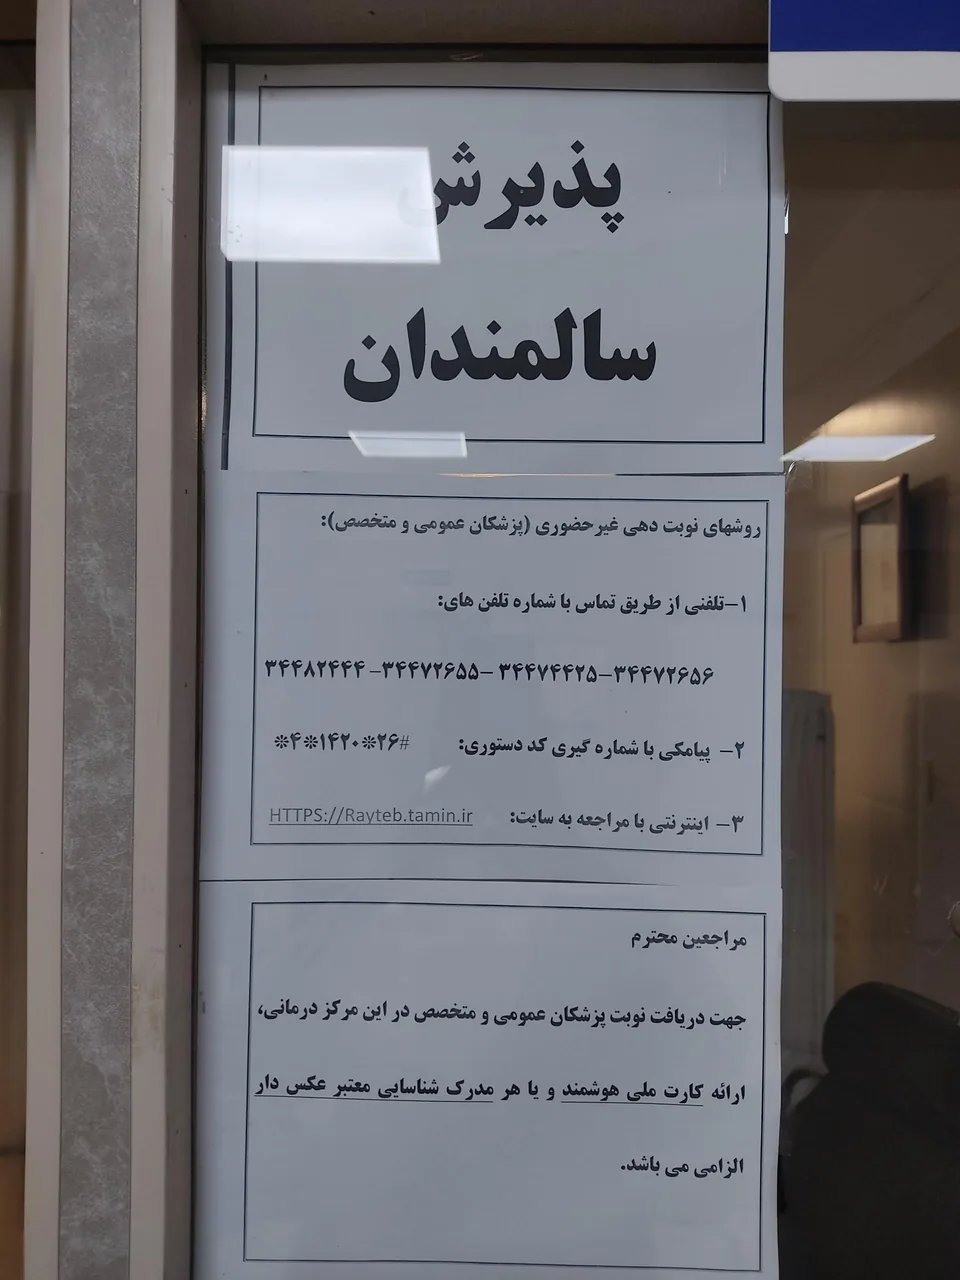 پذیرش
سالمندان
روشهای نوبت دهی غیرحضوری (پزشکان عمومی و متخصص):
۱-تلفنی از طریق تماس با شماره تلفن های:
۳۴۴۷۲۶۵۶-۳۴۴۷۴۴۲۵ -۳۴۴۷۲۶۵۵- ۳۴۴۸۲۴۴۴
۲- پیامکی با شماره گیری کد دستوری: *۴*۱۴۲۰*۲۶#
۳- اینترنتی با مراجعه به سایت: HTTPS://Rayteb.tamin.ir
مراجعین محترم
جهت دریافت نوبت پزشکان عمومی و متخصص در این مرکز درمانی،
ارائه کارت ملی هوشمند و یا هر مدرک شناسایی معتبر عکس دار
الزامی می باشد.